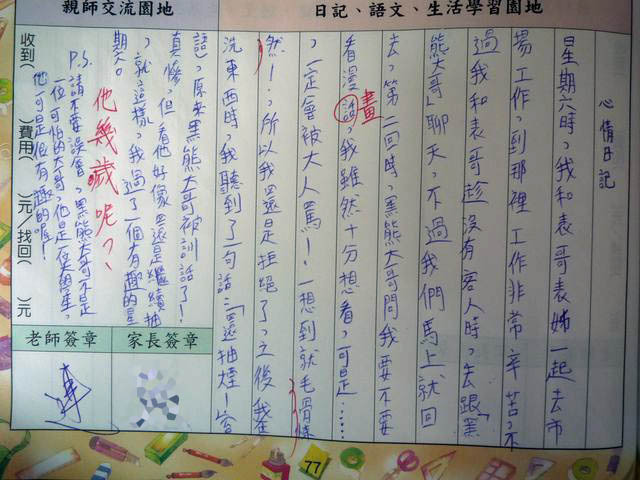 親師交流園地
日記、語文、生活學習園地
心情日記
星期六時,我和表哥表姊一起去市
場工作,到那裡工作非常辛苦,不
過我和表哥趁沒有客人時,去跟「黑
熊大哥」聊天,不過我們馬上就回
去,第二回時,黑熊大哥問我要不要
看漫話,我雖然十分想看,可是……
畫
,一定會被大人罵!一想到就毛骨悚
然!,所以我還是拒絕了,之後我在
洗東西時,我聽到了一句話:「還抽煙!
語」,原來黑熊大哥被訓話了!
真慘,但看他好像還是繼續抽
,就這樣,我過了一個有趣的星
期六。
他幾歲呢?
P.S.請不要誤會,黑熊大哥不是
一位可怕的大哥,他是一位
他可是很有趣的喔!
收到( )費用( )元/找回( )元
老師簽章
家長簽章
77